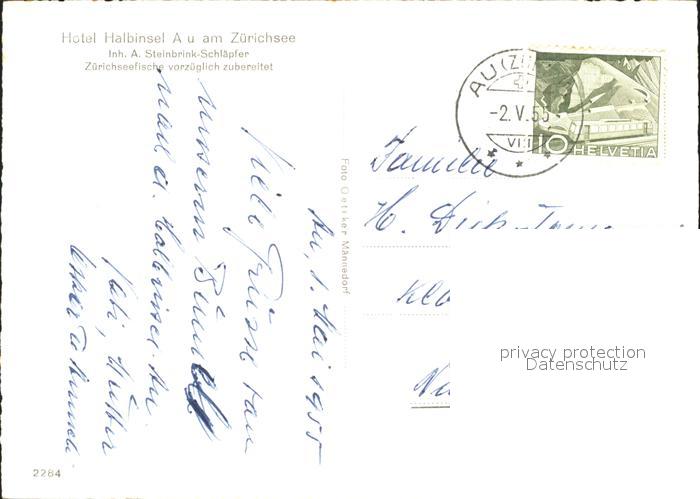 Hotel Halbinsel Au am Zürichsee
Inh. A. Steinbrink-Schläpfer
Zürichseefische vorzüglich zubereitet
AU (ZÜ
-2.V.55
VIII
10 HELVETIA
Foto Oetiker Männedorf
Au, 1. Mai 1955
Viele Grüsse von
unserem Bummel
nach d. Halbinsel Au
Familie
H.
privacy protection
Datenschutz
2284